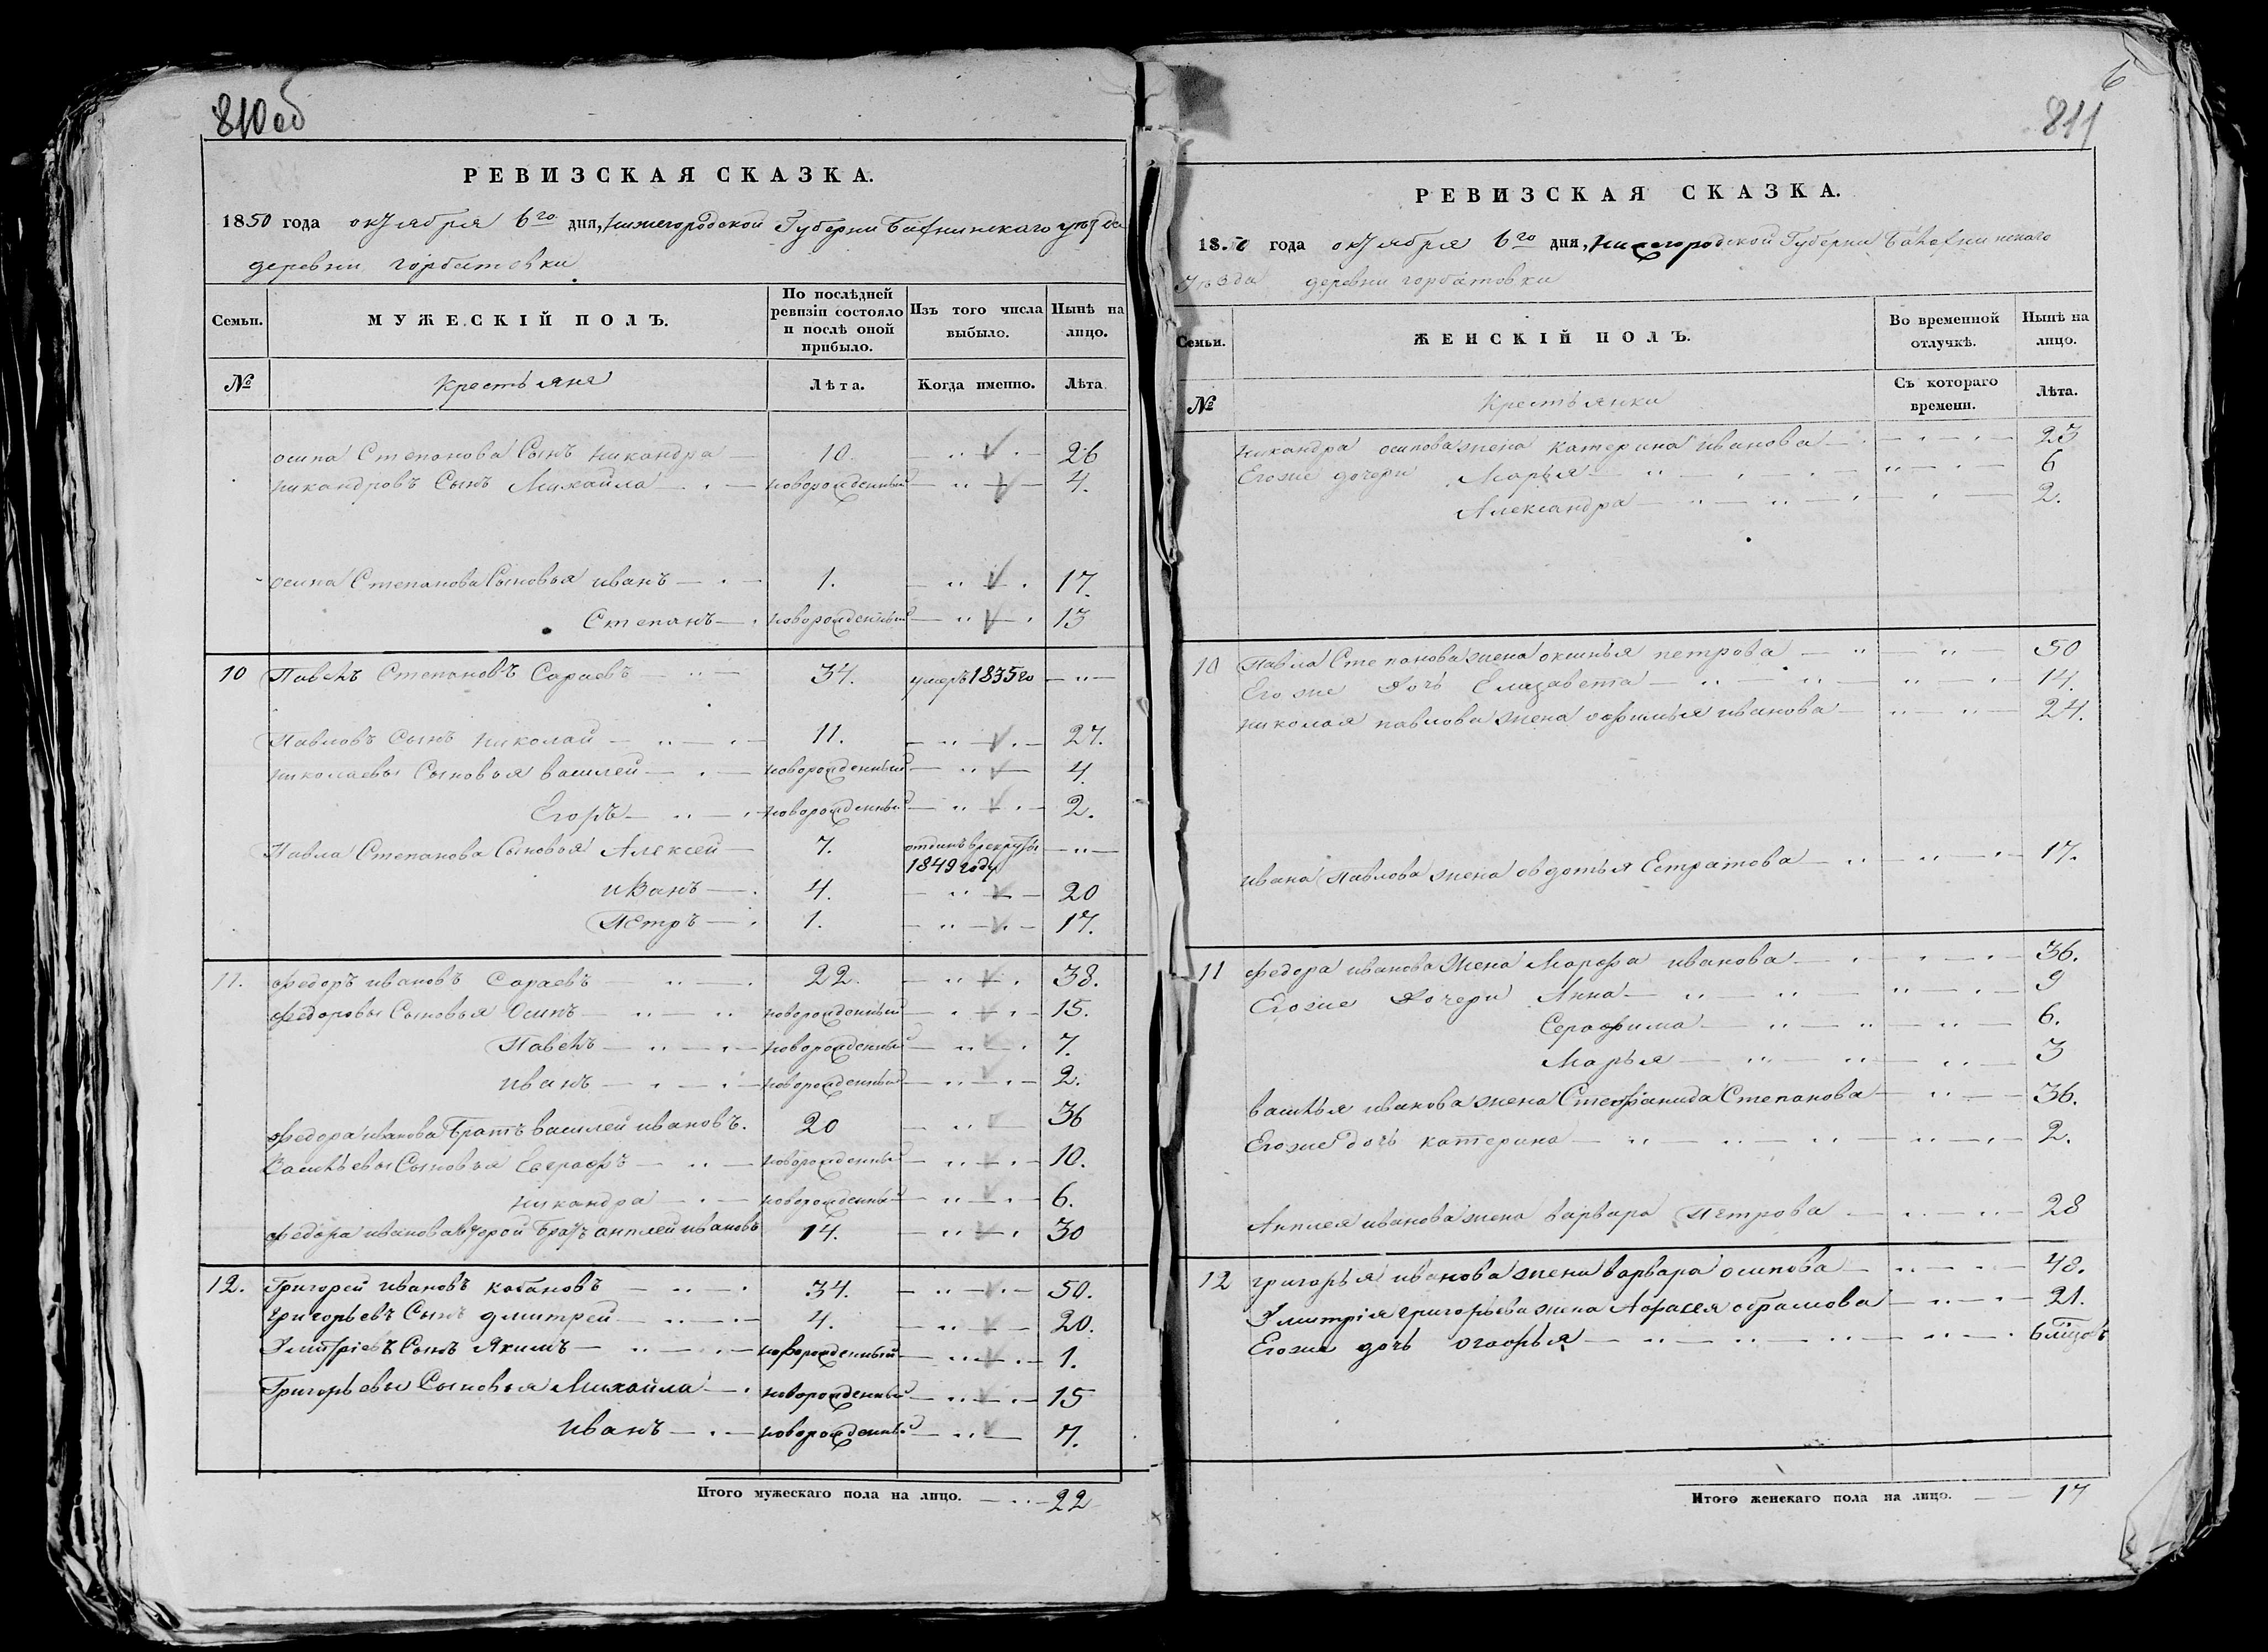 810 об
РЕВИЗСКАЯ СКАЗКА.
1850 года октября 6го дня, Нижегородской Губерни Балахнинскаго уѣзда
деревни горбатовки
Семьи. МУЖЕСКІЙ ПОЛЪ. По послѣдней ревизіи состояло и послѣ оной прибыло. Изъ того числа выбыло. Нынѣ на лицо.
№ Крестьяня Лѣта. Когда именно. Лѣта
осипа Степанова Сынъ никандра 10. 26
никандровъ Сынъ Михайла новорожденный 4.
осипа Степанова Сыновья иванъ 1. 17.
Степанъ новорожденный 13
10 Павелъ Степановъ Сараевъ 34. умеръ 1835го
Павловъ Сынъ николай 11. 27.
николаевы Сыновья василей новорожденный 4
Егоръ новорожденный 2.
Павла Степанова Сыновья Алексей 7. отданъ врекруты
1849 году
иванъ 4. 20
Петръ 1. 17.
11. федоръ ивановъ Сараевъ 22. 38.
федоровы Сыновья Осипъ новорожденный 15.
Павелъ новорожденный 7.
иванъ новорожденный 2.
федора иванова братъ василей ивановъ. 20 36
Васильевы Сыновья Евграфъ новорожденный 10.
никандра новорожденный 6.
федора иванова второй братъ анплей ивановъ 14. 30
12. Григорей ивановъ кабановъ 34. 50.
григорьевъ Сынъ дмитрей 4. 20.
Дмитріевъ Сынъ Якимъ новорожденный 1.
Григорьевы Сыновья Михайла новорожденный 15
иванъ новорожденный 7.
Итого мужескаго пола на лицо. 22
6
811
РЕВИЗСКАЯ СКАЗКА.
1850 года октября 6го дня, Нижегородской Губерни Балахнинскаго
уѣзда деревни горбатовки
Семьи. ЖЕНСКІЙ ПОЛЪ. Во временной отлучкѣ. Нынѣ на лицо.
№ Крестьянки Съ котораго времени. Лѣта.
никандра осипова жена катерина иванова 23
Егоже дочери Марья 6
Александра 2.
10 Павла Степанова жена оксинья петрова 50
Егоже дочь Елизавета 14.
николая павлова жена офимья иванова 24.
ивана павлова жена овдотья Естратова 17.
11 федора иванова жена Марфа иванова 36.
Егоже дочери Анна 9
Серафима 6.
Марья 3
василья иванова жена Стефанида Степанова 36.
Егоже дочь катерина 2.
Анплея иванова жена варвара петрова 28
12 григорья иванова жена варвара осипова 48.
Дмитрія григорьева жена Афрасея обрамова 21.
Егоже дочь огафья 6 мѣсяцовъ
Итого женскаго пола на лицо. 17